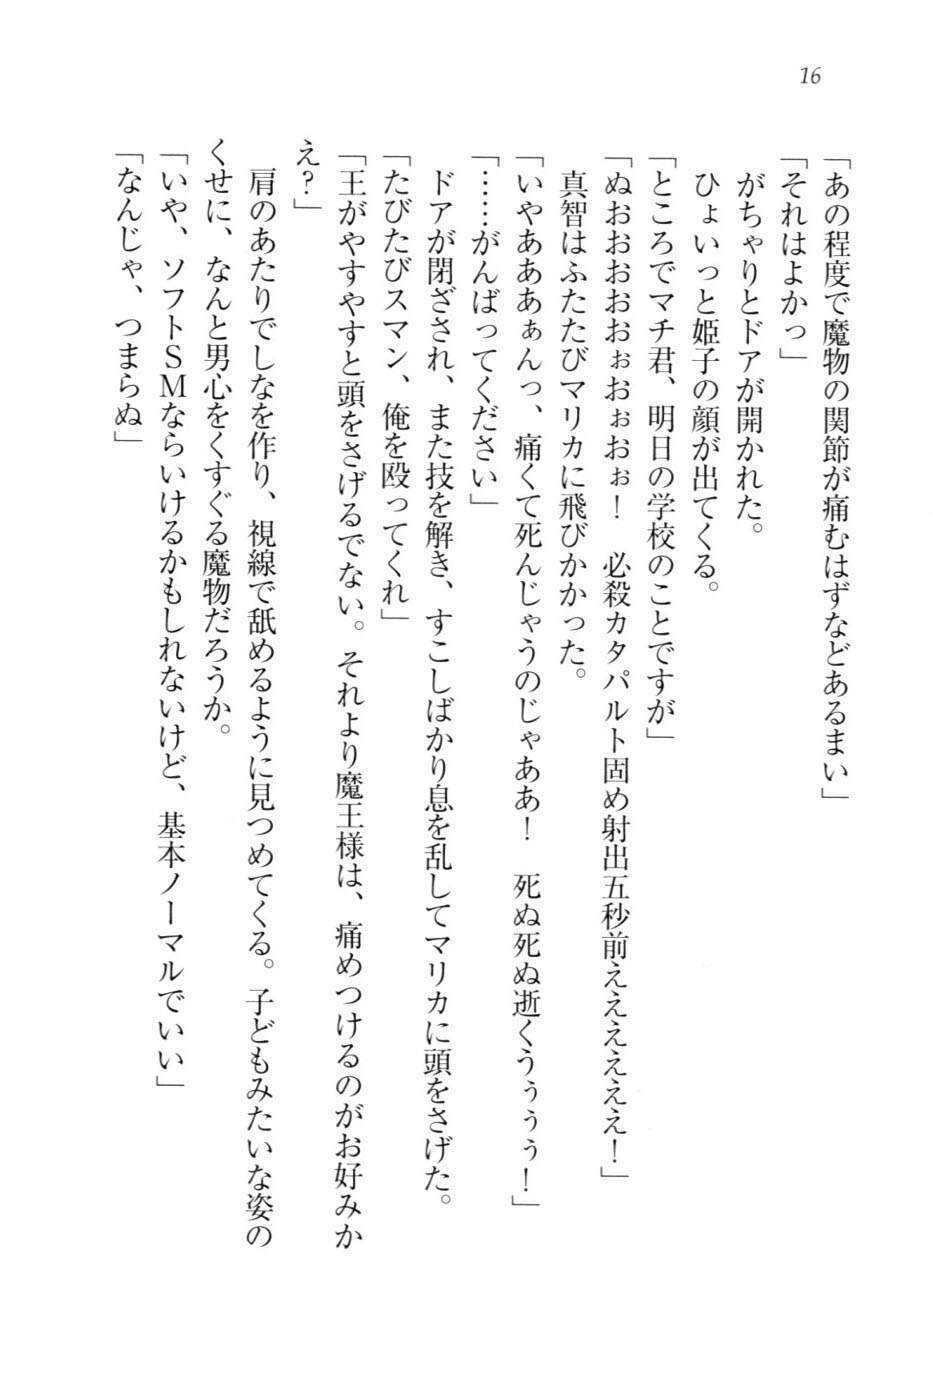 16
「あの程度で魔物の関節が痛むはずなどあるまい」
「それはよかっ」
　がちゃりとドアが開かれた。
　ひょいっと姫子の顔が出てくる。
「ところでマチ君、明日の学校のことですが」
「ぬおおおおおぉおぉおぉ！　必殺カタパルト固め射出五秒前ええええええ！」
　真智はふたたびマリカに飛びかかった。
「いやあああぁんっ、痛くて死んじゃうのじゃああ！　死ぬ死ぬ逝くうぅぅぅ！」
「……がんばってください」
　ドアが閉ざされ、また技を解き、すこしばかり息を乱してマリカに頭をさげた。
「たびたびスマン、俺を殴ってくれ」
「王がやすやすと頭をさげるでない。それより魔王様は、痛めつけるのがお好みか
え？」
　肩のあたりでしなを作り、視線で舐めるように見つめてくる。子どもみたいな姿の
くせに、なんと男心をくすぐる魔物だろうか。
「いや、ソフトＳＭならいけるかもしれないけど、基本ノーマルでいい」
「なんじゃ、つまらぬ」